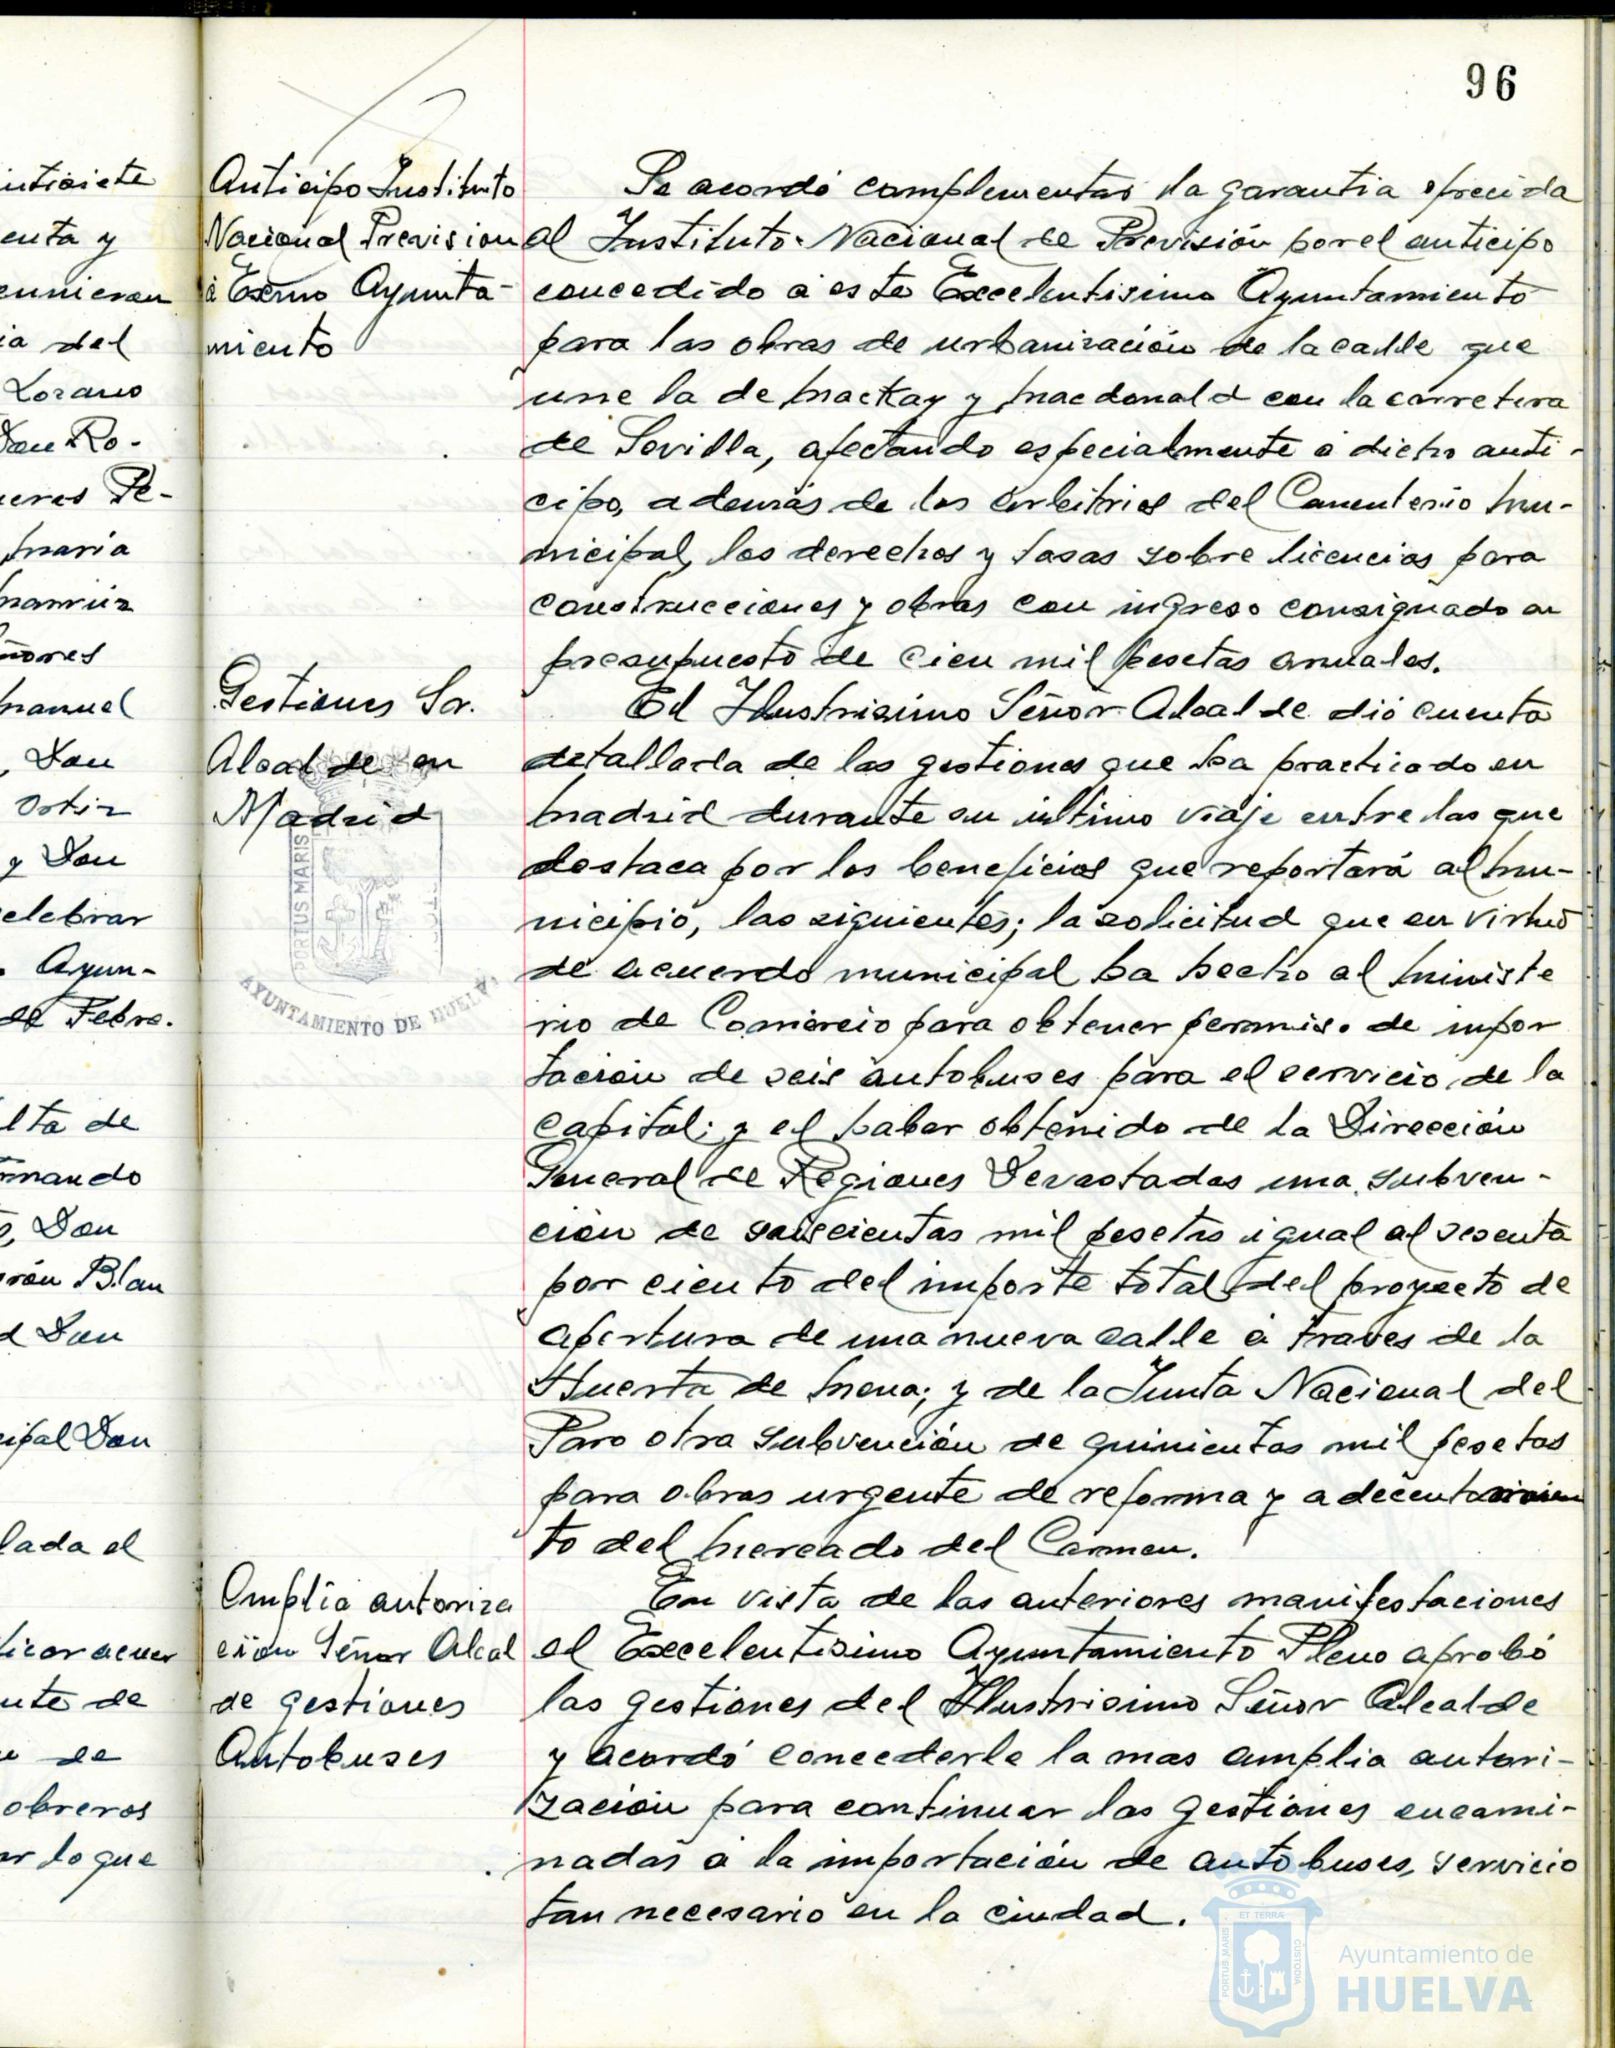 96
intisiete
enta y
eunieron
ia del
Lozano
Don Ro-
ueres Pe-
María
Mamriz
ñores
Manuel
, Don
Ortiz
y Don
elebrar
Ayun-
de Febre.
lta de
rnando
Don
rón Blan
d Don
cipal Don
lada el
ticar acuer
nte de
de
obreros
ar lo que
Anticipo Instituto
Nacional Prevision
á Excmo Ayunta-
miento
Se acordó complementar la garantia ofrecida
al Instituto Nacional de Previsión por el anticipo
concedido á este Excelentisimo Ayuntamiento
para las obras de urbanización de la calle que
une la de Mackay y Macdonald con la carretera
de Sevilla, afectando especialmente á dicho anti-
cipo, además de los arbitrios del Cementerio Mu-
nicipal, los derechos y tasas sobre licencias para
construcciones y obras con ingreso consignado en
presupuesto de cien mil pesetas anuales.
Gestiones Sr.
Alcalde en
Madrid
PORTUS MARIS
AYUNTAMIENTO DE HUELVA
El Ilustrisimo Señor Alcalde dió cuenta
detallada de las gestiones que ha practicado en
Madrid durante su último viaje entre las que
destaca por los beneficios que reportará al Mu-
nicipio, las siguientes; la solicitud que en virtud
de acuerdo municipal ha hecho al Ministe
rio de Comercio para obtener permiso de impor
tación de seis autobuses para el servicio de la
capital; y el haber obtenido de la Dirección
General de Regiones Devastadas una subven-
ción de seiscientas mil pesetas igual al sesenta
por ciento del importe total del proyecto de
apertura de una nueva calle á traves de la
Huerta de Mena; y de la Junta Nacional del
Paro otra subvención de quinientas mil pesetas
para obras urgente de reforma y adecentamien
to del Mercado del Carmen.
Amplia autoriza
ción Señor Alcal
de gestiones
Autobuses
En vista de las anteriores manifestaciones
el Excelentisimo Ayuntamiento Pleno aprobó
las gestiones del Ilustrisimo Señor Alcalde
y acordó concederle la mas amplia autori-
zación para continuar las gestiones encami-
nadas á la importación de autobuses, servicio
tan necesario en la ciudad.
PORTUS MARIS
ET TERRA
CUSTODIA
Ayuntamiento de
HUELVA